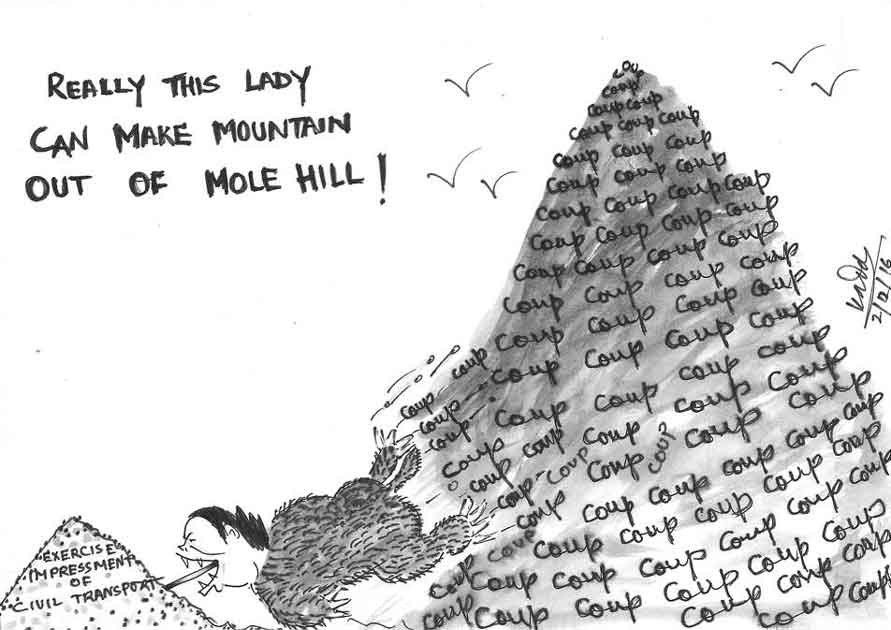 REALLY THIS LADY
CAN MAKE MOUNTAIN
OUT OF MOLE HILL!
cou
coup
coup coup
coup coup coup
coup coup coup
coup coup coup
coup coup coup coup
coup coup coup coup
coup coup coup coup
coup coup coup coup
coup coup coup coup
coup coup coup coup coup
coup coup coup coup coup
coup coup coup
coup coup coup coup coup
coup coup coup coup coup coup
coup coup coup coup coup coup
coup coup coup coup coup coup
coup coup coup coup coup coup
coup coup coup coup coup coup
coup coup coup coup coup coup
2/12/16
EXERCISE
IMPRESSMENT
OF
CIVIL TRANSPORT